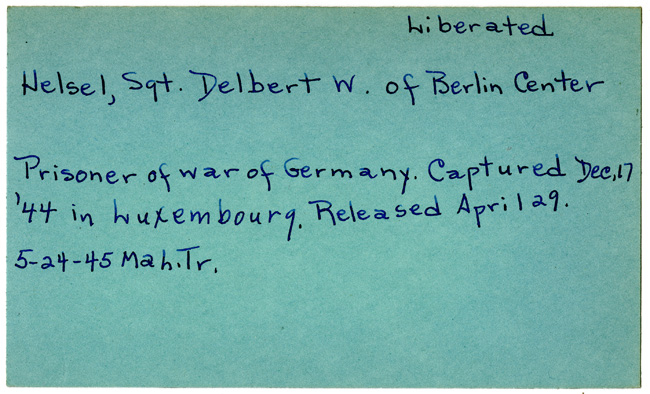 Liberated
Helsel, Sgt. Delbert W. of Berlin Center
Prisoner of war of Germany. Captured Dec, 17
'44 in Luxembourg. Released April 29.
5-24-45 Mah. Tr.